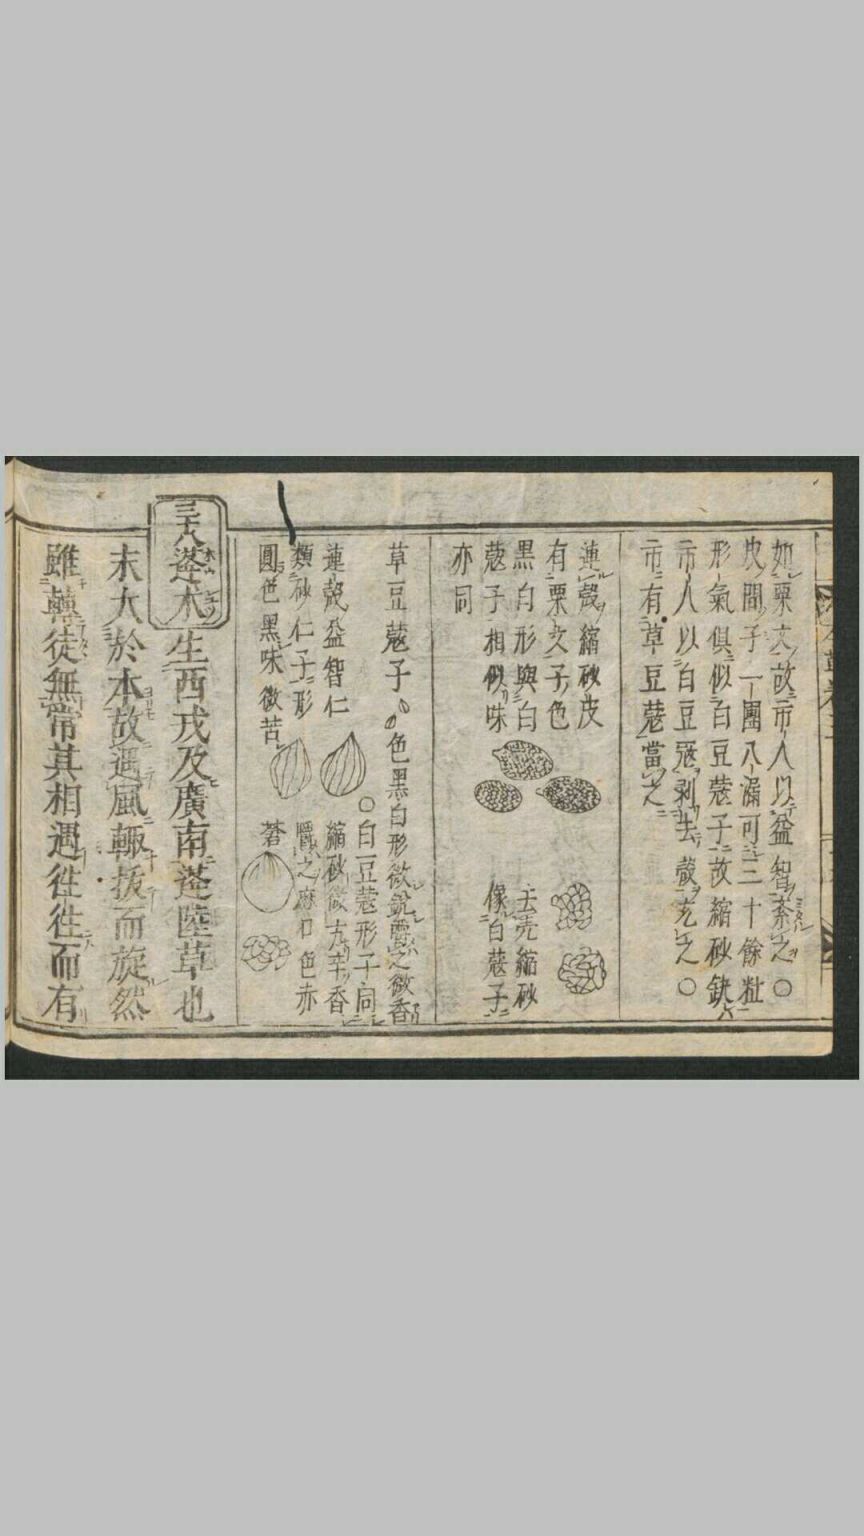 如栗文故市人以益智紊之〇
皮間子一團八漏可二十餘粒
形氣俱似白豆蔻子故縮砂缺
市人以白豆蔻剥去殼充之〇
市有草豆蔻當之
連殼縮砂皮
有栗文子色
黒白形與白
蔻子相似味
亦同
去壳縮砂
像白蔻子
草豆蔻子色黒白形微鋭嚼之微香
〇白豆蔻形子同
連殼益智仁
縮砂微大辛香
類砂仁子形
嚼之麻口色赤
圓色黒味微苦
莟
三十八 蓬朮 生西戎及廣南蓬陸草也
末大於本故遇風輙拔而旋然
雖轉徒無常其相遇徃徃而有